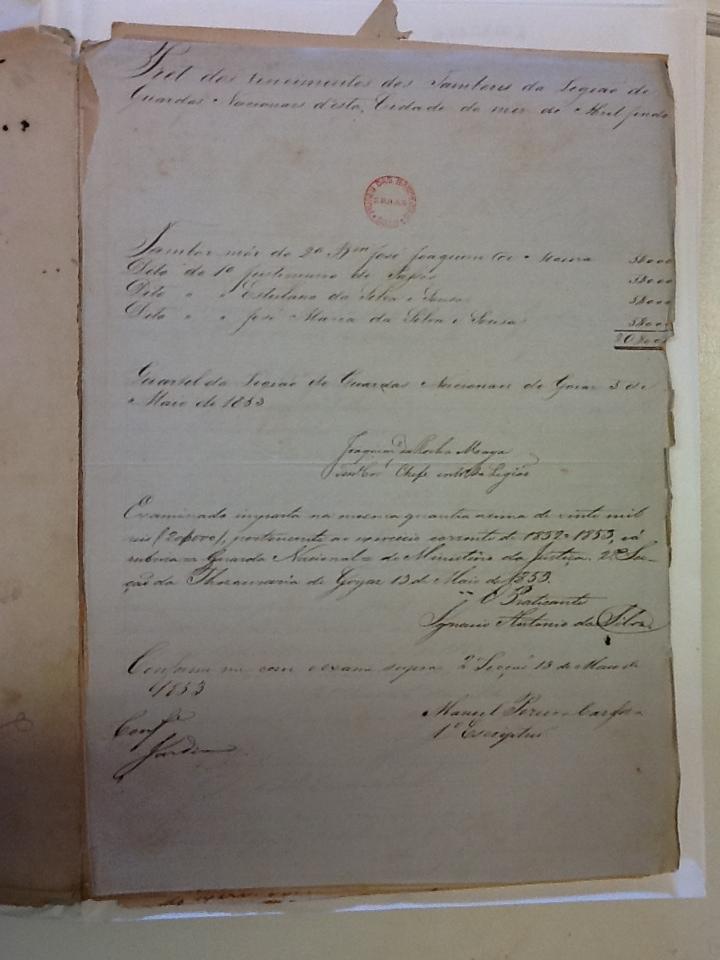 Pret dos vencimentos dos Tambores da Legião de
Guardas Nacionais d'esta Cidade do mez de Abril findo
Tambor mór do 2º Bm José Joaquim 5$000
Dito do 1º Justiniano de 5$000
Dito " " Estulano da Silva e Sousa 5$000
Dito " " José Maria da Silva e Sousa 5$000
20$000
Quartel da Legião de Guardas Nacionais de Goiaz 3 de
Maio de 1853
Joaquim da Rocha Maya
Chefe da Legião
Examinado importa na mesma quantia acima de vinte mil
reis (20$000), pertencente ao exercicio corrente de 1852-1853, e á
rubrica = Guarda Nacional = do Ministério da Justiça. 2ª Sec-
ção da Thesouraria de Goyaz 13 de Maio de 1853.
O Praticante
Ignacio Antonio da Silva
Conforme com o exame supra 2ª Secção 13 de Maio de
1853
Manoel Pereira Cardoso
1º Escriptur
Conf
Jardim